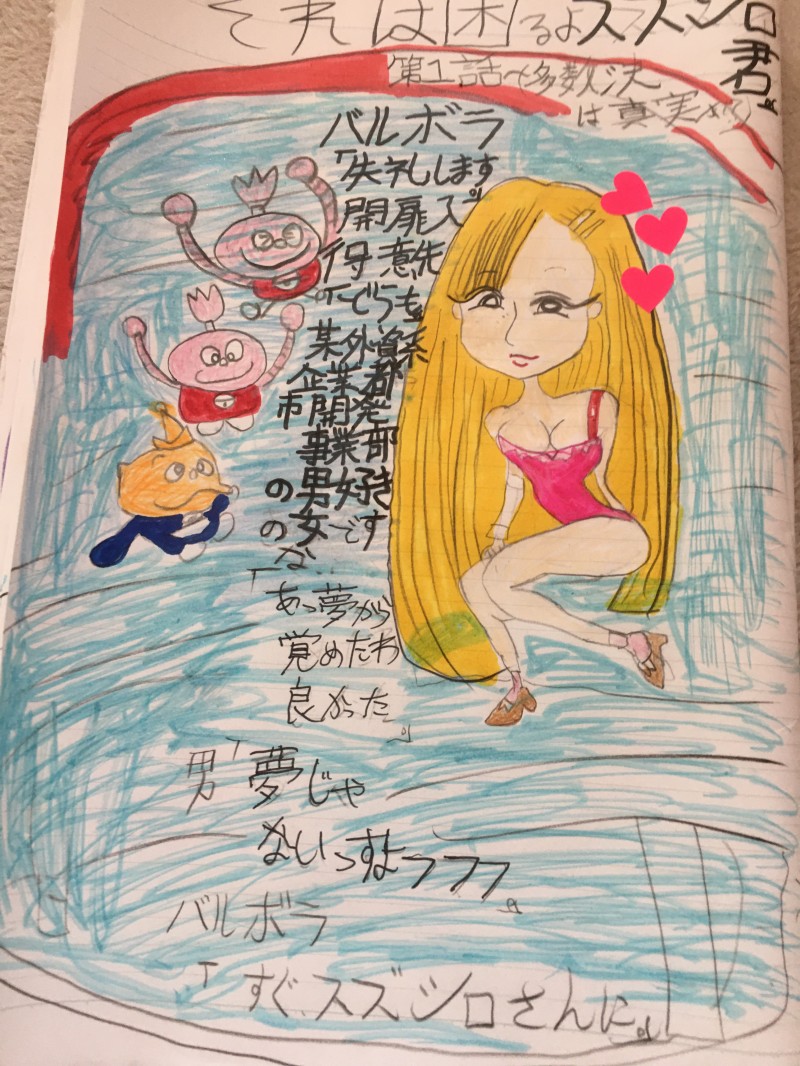 それは困るよスズシロ君。
第1話〜多数決
は真実か?〜
バルボラ
「失礼します。」
開扉入
得意先
「どうも。」
某外資系
企業都
市開発
事業部
の男好き
の女です
な…
「あっ夢から
覚めたわ
良かった。」
男「夢じゃ
ないっすよフフフ。」
バルボラ
「すぐスズシロさんに。」